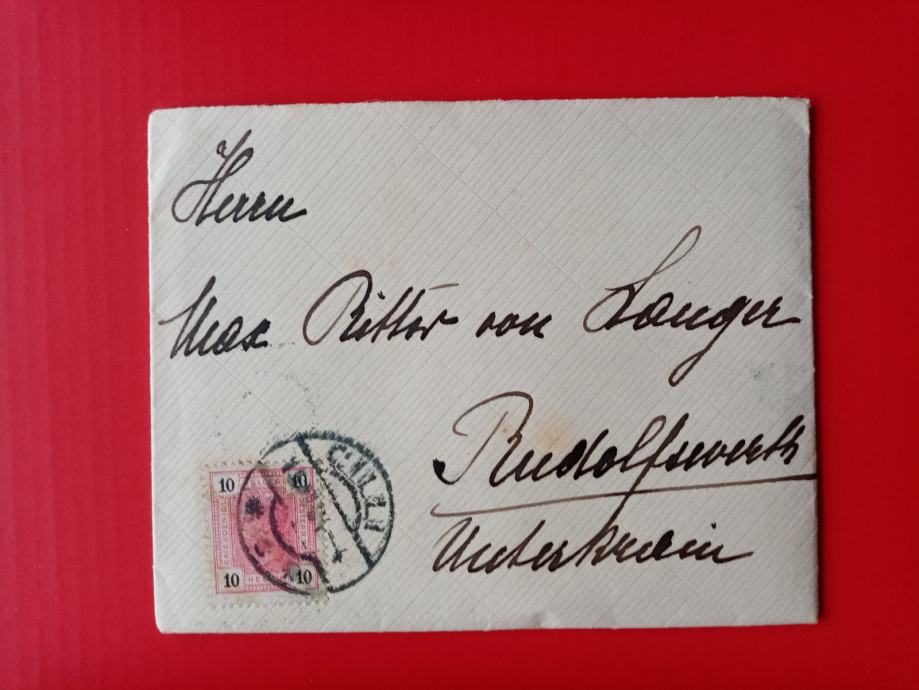 Herrn
Max Ritter von Langer
Rudolfswerth
Unterkrain
10 HELLER 10
10 HELLER 10